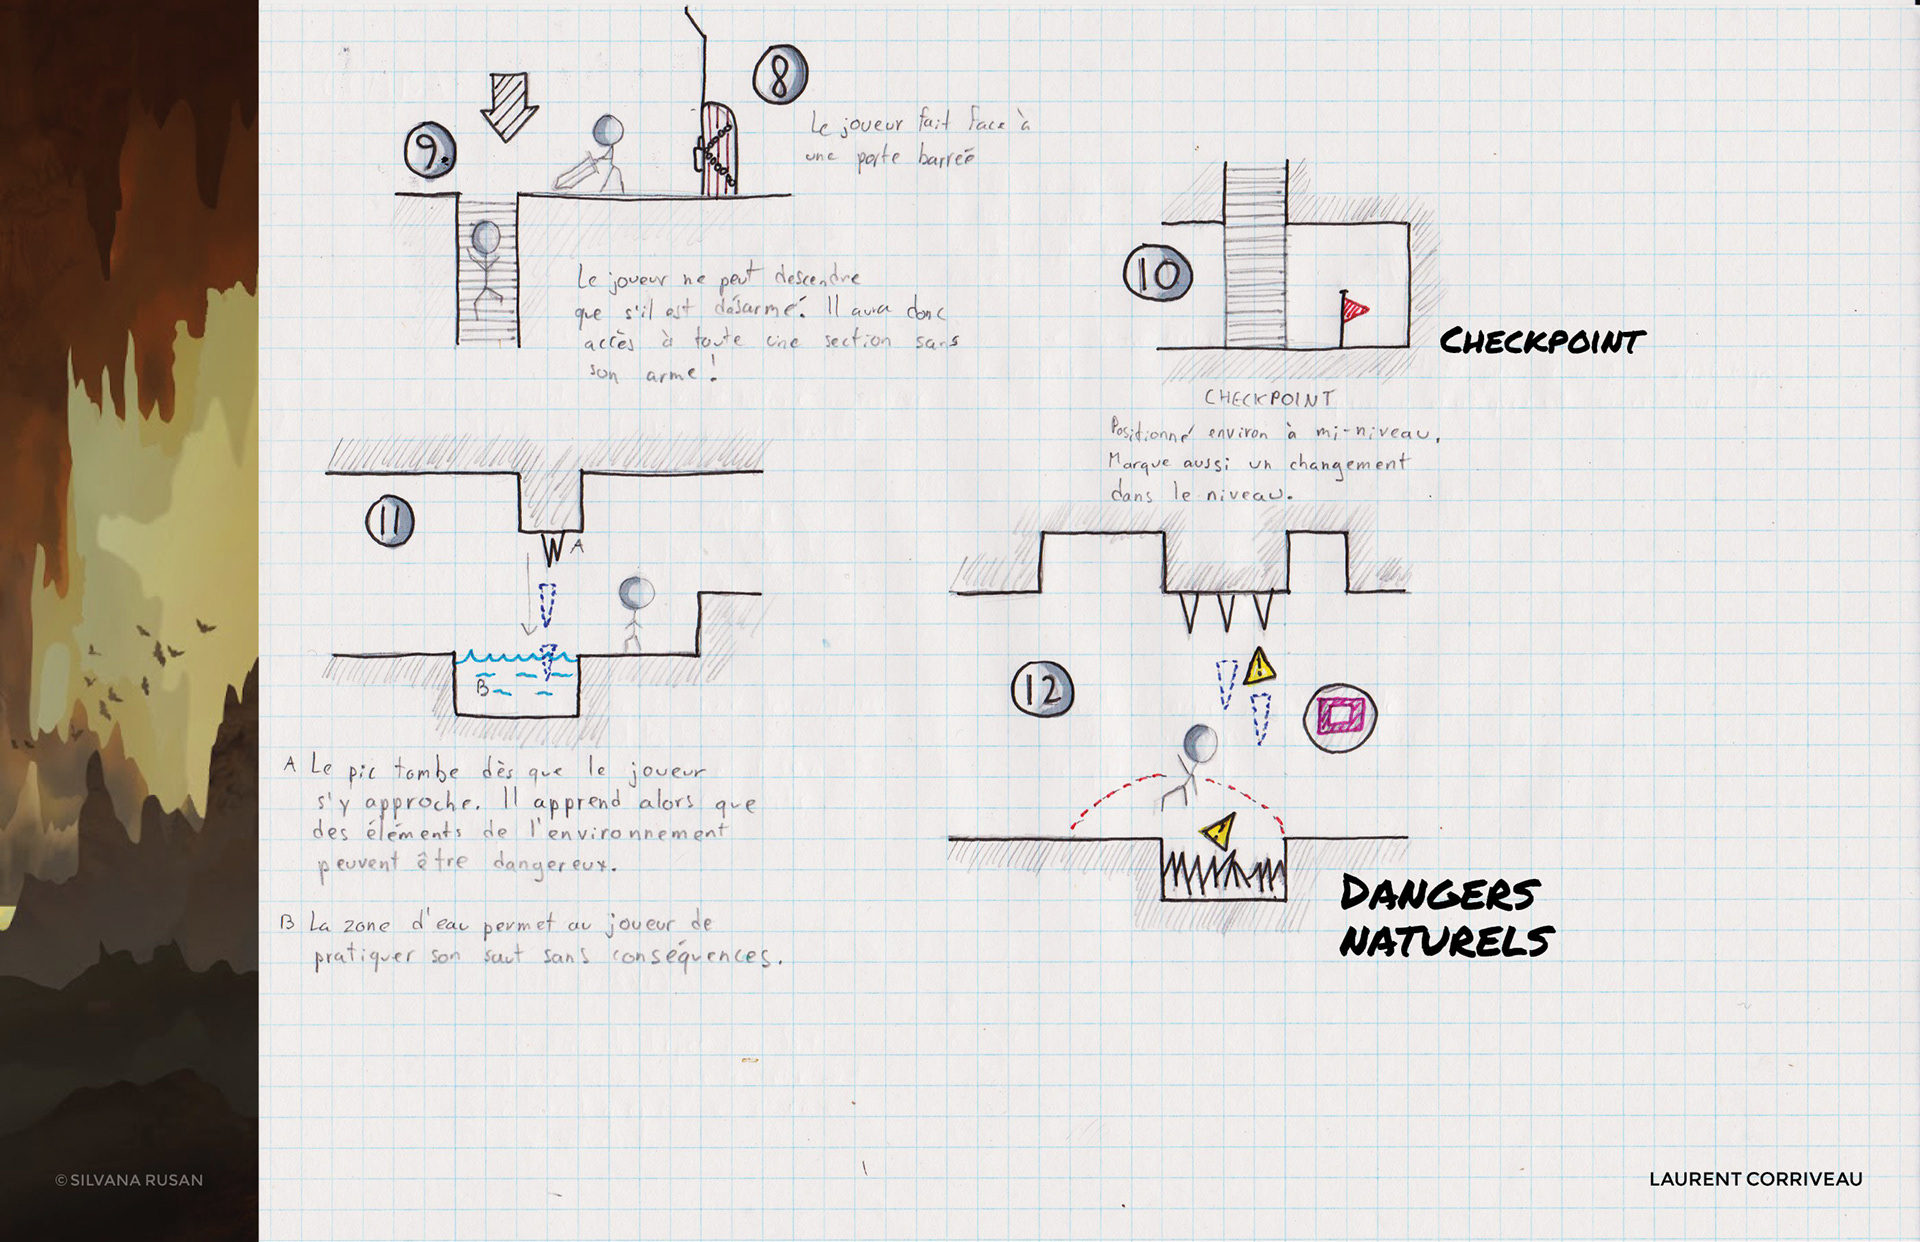 8
Le joueur fait face à
une porte barrée
9
Le joueur ne peut descendre
que s'il est désarmé. Il aura donc
accès à toute une section sans
son arme !
10
CHECKPOINT
CHECKPOINT
Positionné environ à mi-niveau.
Marque aussi un changement
dans le niveau.
11
A
B
A Le pic tombe dès que le joueur
s'y approche. Il apprend alors que
des éléments de l'environnement
peuvent être dangereux.
B La zone d'eau permet au joueur de
pratiquer son saut sans conséquences.
12
!
!
DANGERS
NATURELS
© SILVANA RUSAN
LAURENT CORRIVEAU